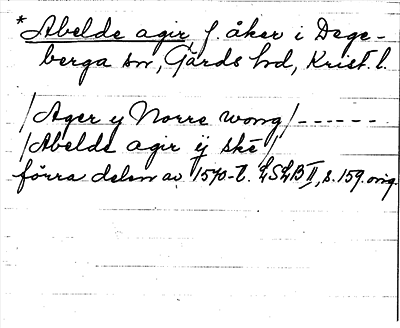 * Abelde agir f. åker i Dege-
berga sn, Gärds hd, Krist. l.
/Ager y Norre wong/------
/Abelde agir ij ske/
förra delen av 1570-t. LSLB II, s. 159. orig.